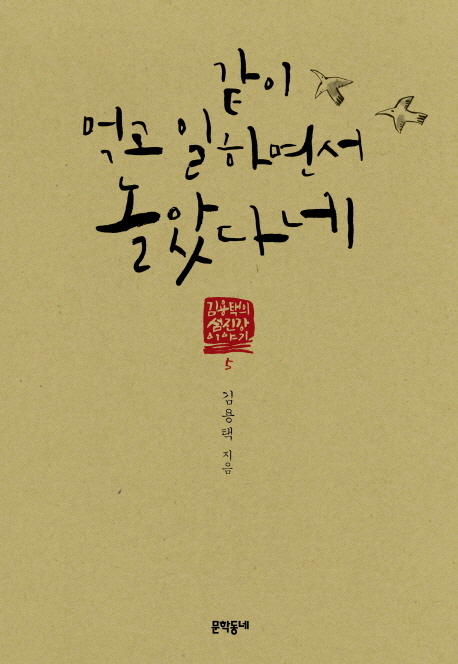 같이
먹고 일하면서
놀았다네
김용택의
섬진강
이야기
5
김용택 지음
문학동네